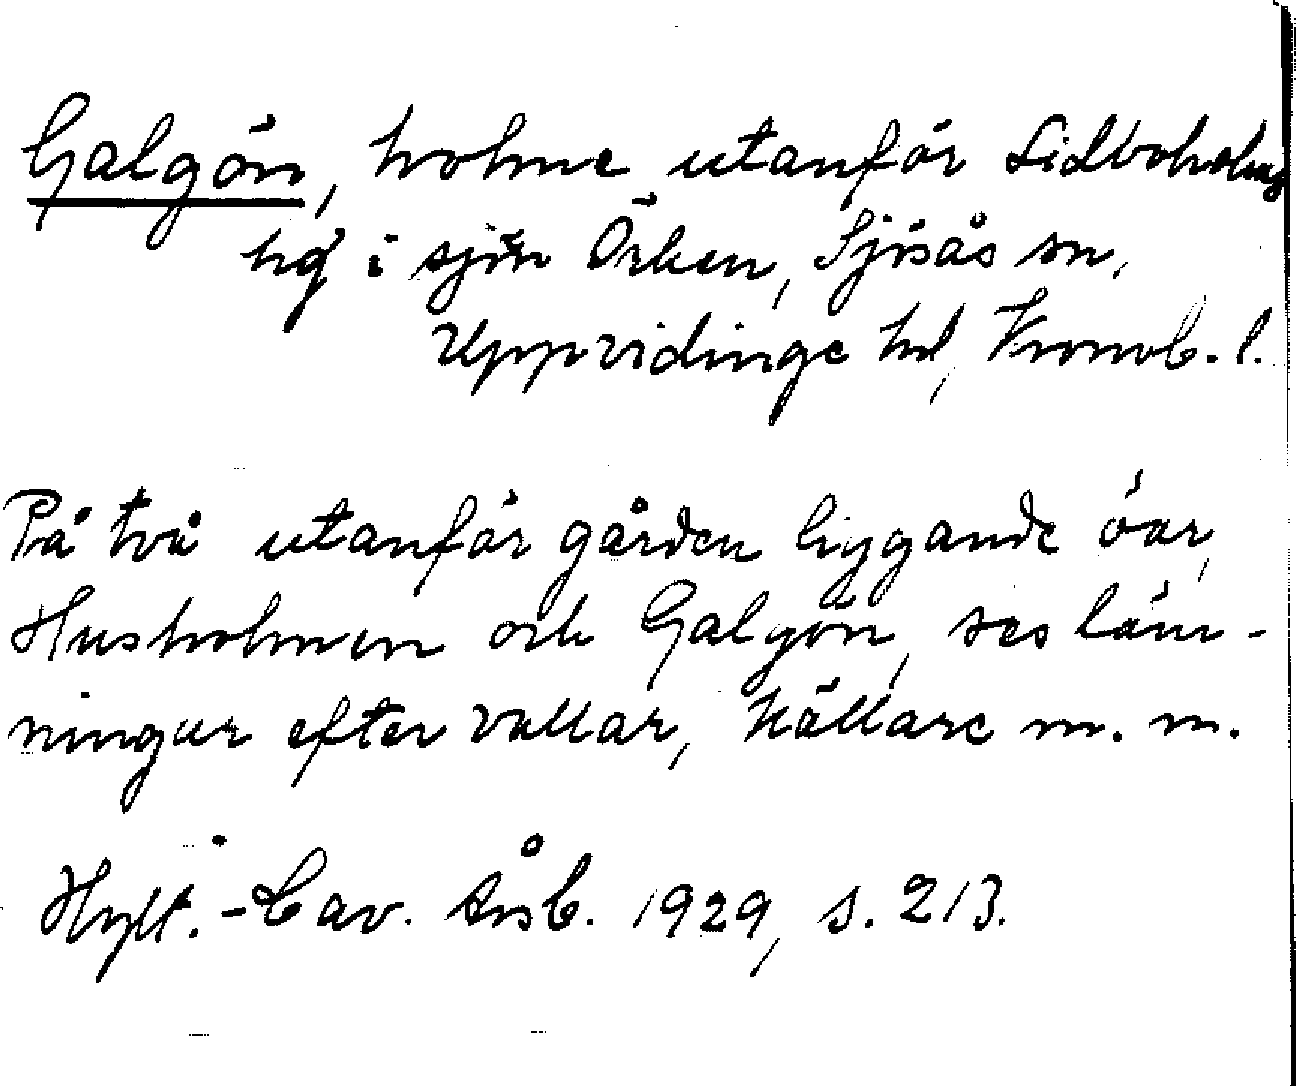 Galgön, holme utanför Lidboholms
hg i sjön Örken, Sjösås sn,
Uppvidinge hd, Kronob. l.
På två utanför gården liggande öar,
Husholmen och Galgön, ses läm-
ningar efter vallar, källare m. m.
Hylt.-Cav. Årsb. 1929, s. 213.